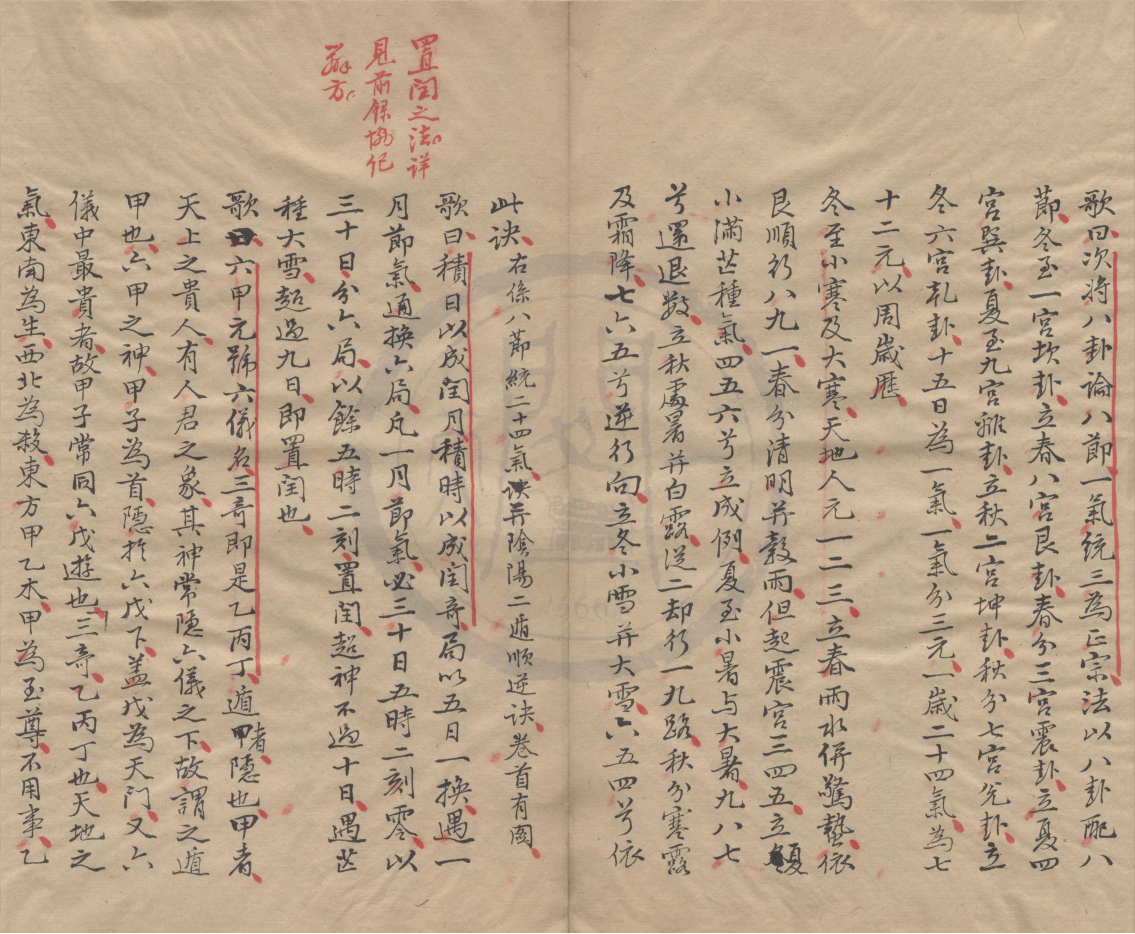 歌曰次將八卦論八節一氣統三為正宗法以八卦配八
節冬至一宮坎卦立春八宮艮卦春分三宮震卦立夏四
宮巽卦夏至九宮離卦立秋二宮坤卦秋分七宮兌卦立
冬六宮乾卦十五日為一氣一氣分三元一歲二十四氣為七
十二元以周歲曆
冬至小寒及大寒天地人元一二三立春雨水併驚蟄依
艮順行八九一春分清明并穀雨但起震宮三四五立夏
小滿芒種氣四五六兮立成例夏至小暑与大暑九八七
兮還退數立秋處暑并白露逆二却行一九路秋分寒露
及霜降七六五兮逆行向立冬小雪并大雪六五四兮依
此訣右條八節統二十四氣訣并陰陽二遁順逆訣卷首有圖
歌曰積日以成閏月積時以成閏奇局以五日一換遇一
月節氣通換六局凡一月節氣必三十日五時二刻零以
三十日分六局以餘五時二刻置閏超神不過十日遇芒
種大雪超過九日即置閏也
歌曰六甲元號六儀名三奇即是乙丙丁遁者甲隱也甲者
天上之貴人有人君之象其神常隱六儀之下故謂之遁
甲也六甲之神甲子為首隱於六戊下盖戊為天門又六
儀中最貴者故甲子常同六戊遊也三奇乙丙丁也天地之
氣東南為生西北為殺東方甲乙木甲為至尊不用事乙
置閏之法詳
見前錄協紀
辨方